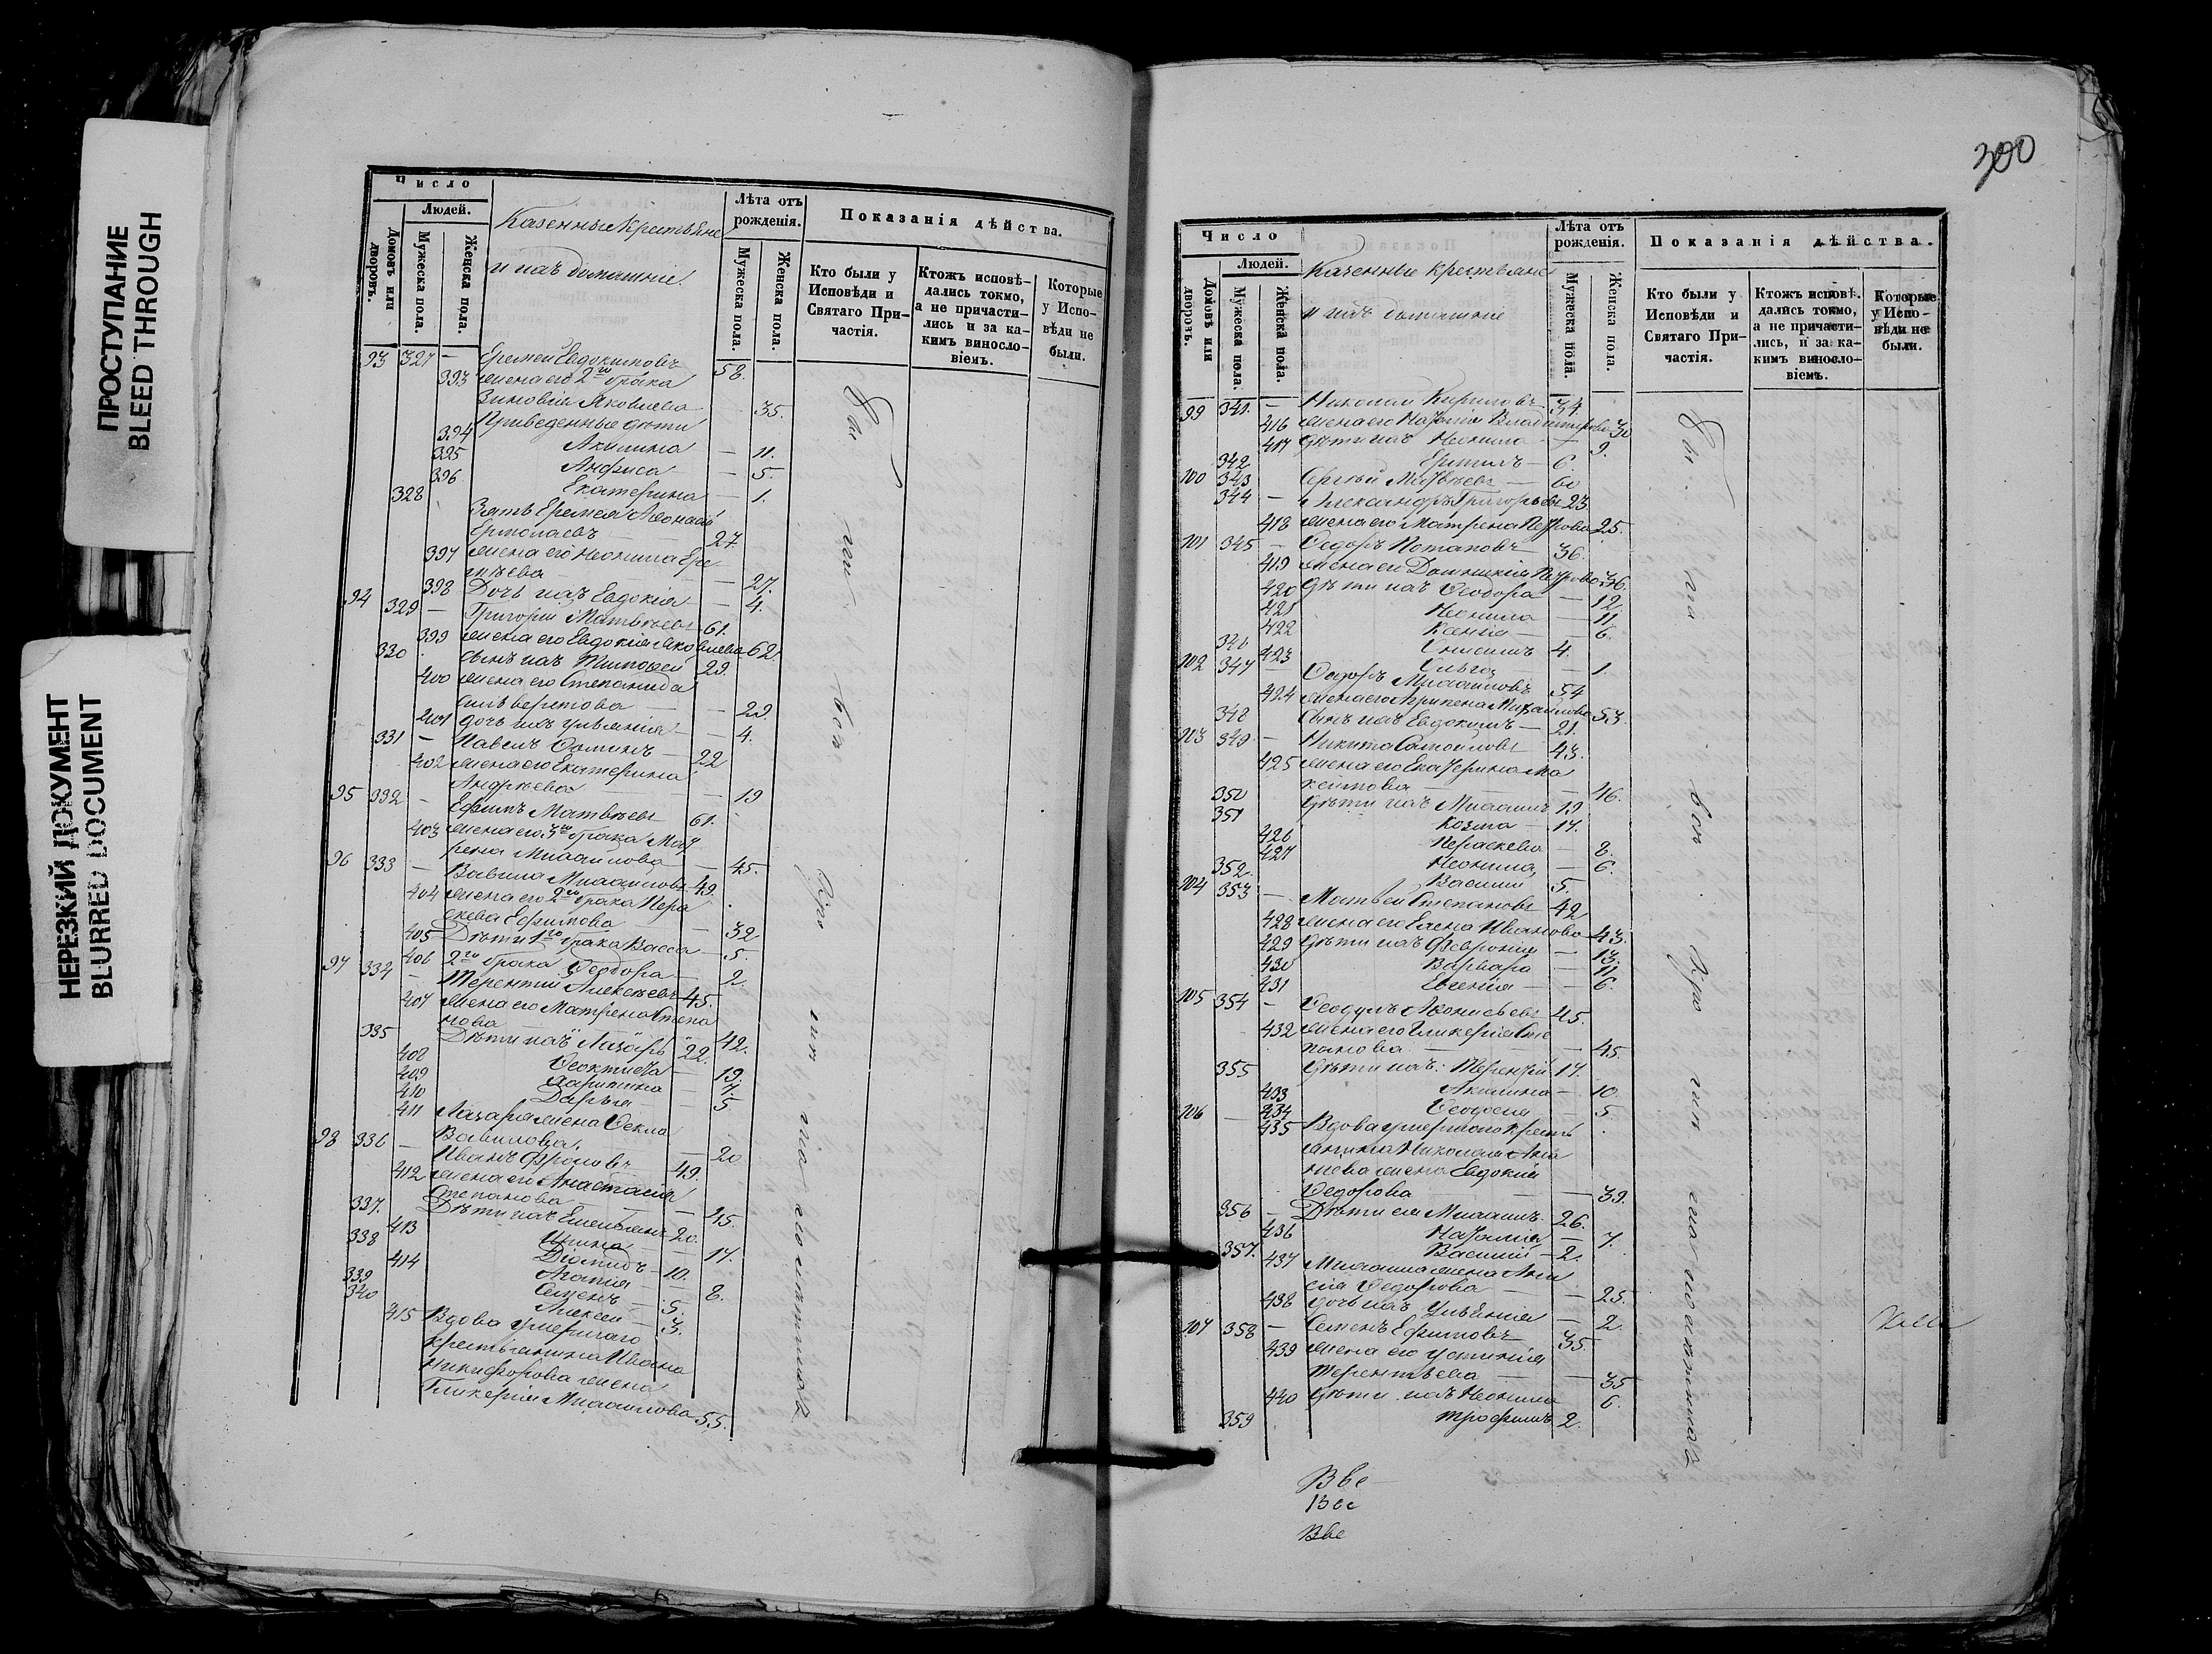 ПРОСТУПАНИЕ
BLEED THROUGH
НЕРЕЗКИЙ ДОКУМЕНТ
BLURRED DOCUMENT
Число
Людей.
Домовъ или дворовъ.
Мужеска пола.
Женска пола.
Казенные крестьяне
и ихъ домашніе.
Лѣта отъ рожденія.
Мужеска пола.
Женска пола.
Показанія дѣйства.
Кто были у Исповѣди и Святаго При-
частія.
Ктожъ исповѣ-
дались токмо,
а не причасти-
лись и за ка-
кимъ виносло-
віемъ.
Которые
у Испо-
вѣди не
были.
93 327 — Еремей Евдокимовъ 58.
393 жена его 2го брака
Зиновія Яковлева 35.
Приведенные дѣти
394 Акилина — 11.
395 Анфиса — 5.
396 Екатерина — 1.
328 Зять Еремея Аѳонасій
Ермолаевъ 27.
397 жена его Неонила Ере
мѣева — 27.
398 Дочь ихъ Евдокія — 4.
94 329 — Григорій Матвѣевъ 61.
399 жена его Евдокія Яковлева 62.
330 сынъ ихъ Тимоѳей 29.
400 жена его Степанида
Сильверстова — 29.
401 дочь ихъ Ульянія — 4.
331 — Павелъ Ѳоминъ — 22
402 жена его Екатерина
Андрѣева — 19
95 332 — Ефимъ Матвѣевъ 61.
403 жена его 3го брака Мат
рена Михайлова — 45.
96 333 — Вавила Михайловъ 49.
404 жена его 2го брака Пара
скева Ефимова — 32
405 Дѣти 1го брака Васса — 5.
406 2го брака Ѳеодора — 2.
97 334 — Терентий Алексѣевъ 45.
407 жена его Матрена Степа
нова — 42.
335 Дѣти ихъ Лазарь 22.
408 Ѳеоктиста — 19.
409 Харитина — 7.
410 Дарья — 5
411 Лазаря жена Ѳекла
Вавилова — 20
98 336 — Иванъ Фроловъ 49.
412 жена его Анастасія
Степанова — 45.
337. Дѣти ихъ Емельянъ 20.
413 Ирина — 17.
338 Діомидъ — 10.
414 Агапія — 8.
339 Семенъ — 5.
340 Алексѣй — 3.
415 Вдова умершаго
крестьянина Ивана
Никифорова жена
Гликерія Михайлова 55.
300
Число
Людей.
Домовъ или дворовъ.
Мужеска пола.
Женска пола.
Казенные крестьяне
и ихъ домашніе
Лѣта отъ рожденія.
Мужеска пола.
Женска пола.
Показанія дѣйства.
Кто были у Исповѣди и Святаго При-
частія.
Ктожъ исповѣ-
дались токмо,
а не причасти-
лись, и за ка-
кимъ винosло-
віемъ.
Которые
у Испо-
вѣди не
были.
99 341. — Николай Кириловъ 34.
416 жена его Наталія Владимирова 30
417 дѣти ихъ Неонила — 9.
342 Ермилъ — 6.
100 343 Сергѣй Матвѣевъ — 60
344 — Александръ Григорьевъ 23.
418 жена его Матрена Петрова 25.
101 345 — Ѳедоръ Потаповъ — 36.
419 жена его Домникія Петрова 36.
420 Дѣти ихъ Ѳеодора — 12.
421 Неонила — 11
422 Ксенія — 6.
346 Онисимъ 4.
423 Ольга — 1.
102 347 — Ѳедоръ Михайловъ 54
424 жена его Агрипена Михайлова 53.
348 Сынъ ихъ Евдокимъ — 21.
103 349 — Никита Самойловъ 43.
425 жена его Екатерина
— 46.
350 Дѣти ихъ Михаилъ 19
351 Козма — 17.
426 Параскева — 8.
427 Неонила — 6.
352. Василій 5.
104 353 — Матвѣй Степановъ 42
428 жена его Елена Иванова 43.
429 дѣти ихъ Февронія — 13.
430 Варвара — 11
431 Евгенія — 6.
105 354 — Ѳеодулъ Аѳонасьевъ 45.
432 жена его Гликерія Сте
панова — 45
355 Дѣти ихъ: Терентій 17.
433 Акилина — 10.
434 Ѳеодосія — 5
106 — 435 Вдова умершаго кресть
янина Николая Ана
ньева жена Евдокія
Ѳедорова — 39.
356 — Дѣти ея Михаилъ. 26.
436 Наталія — 7.
357. Василій — 2.
437 Михаила жена Ани
сія Ѳедорова — 25.
438 дочь ихъ Ульянія — 2.
107 358 — Семенъ Ефимовъ 35.
439 жена его Устинія
Терентьева — 35
440 Дѣти ихъ Неонила 6.
359 Трофимъ 2.
Вве
Все
Вве